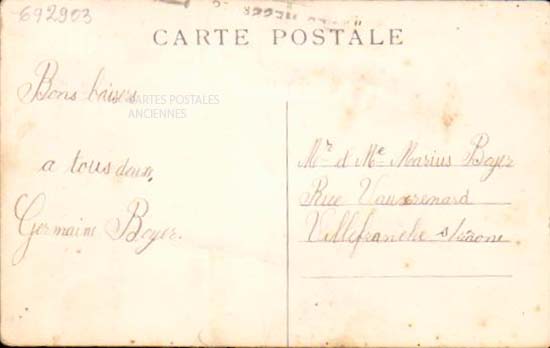 692903
CARTE POSTALE
Bons baisers
CARTES POSTALES
ANCIENNES
a tous deux,
Germaine Boyer.
Mr et Me Marius Boyer
Rue Vauxrenard
Villefranche s/saone